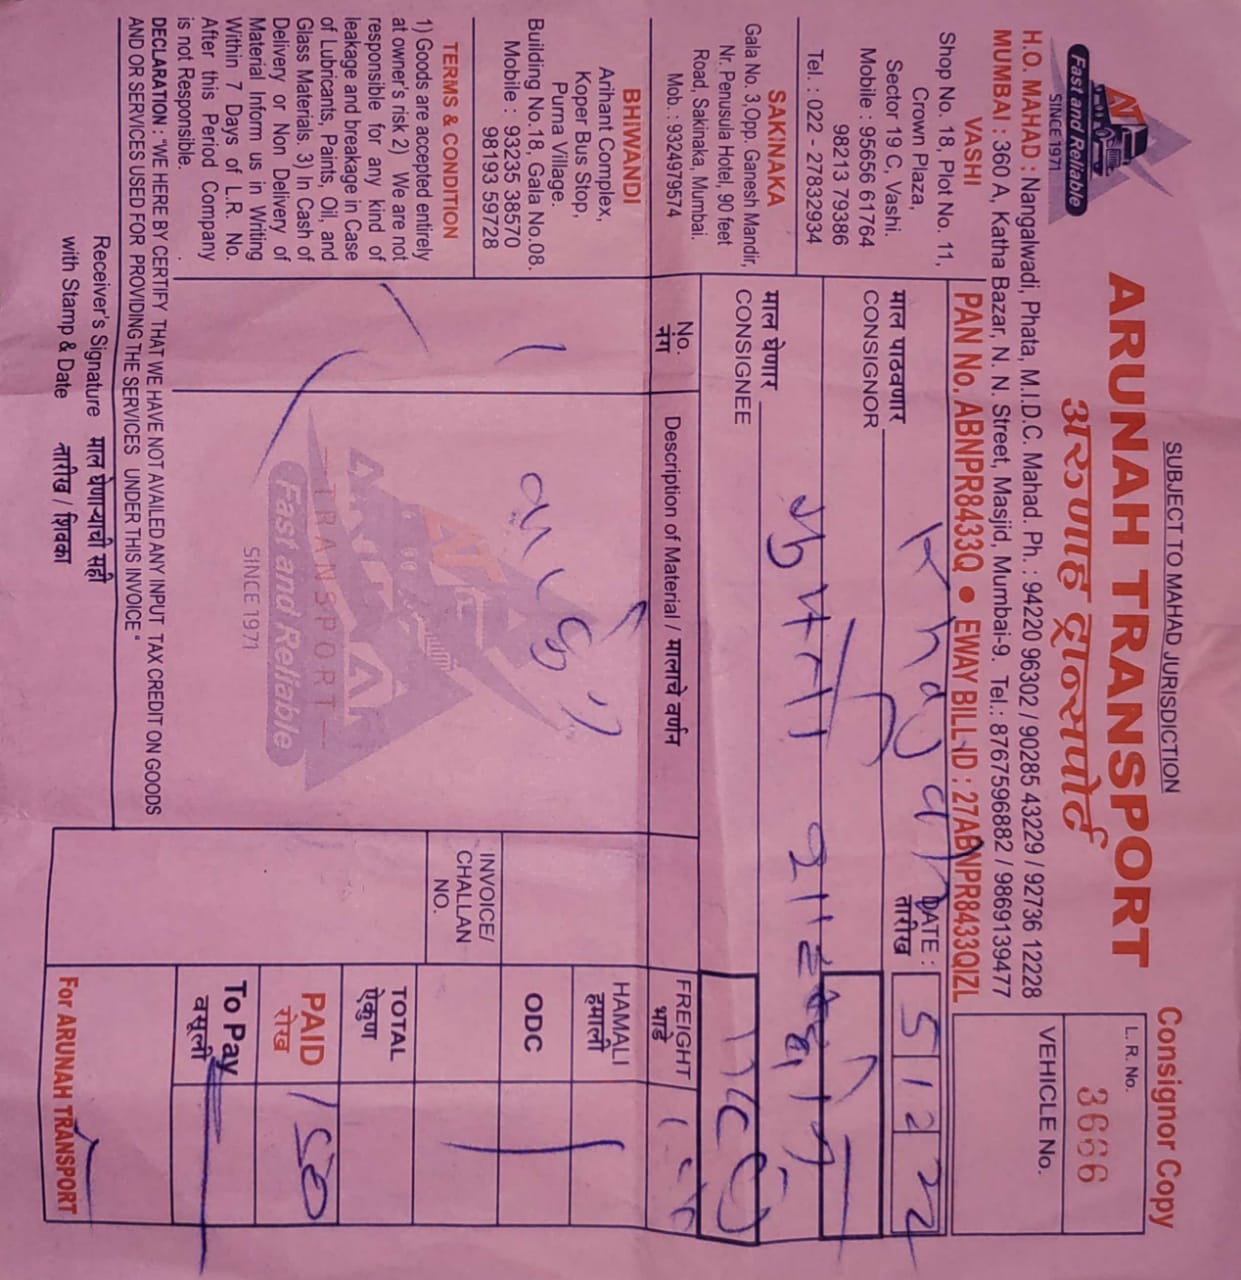 SUBJECT TO MAHAD JURISDICTION
Consignor Copy
ARUNAH TRANSPORT
अरुणाह ट्रान्सपोर्ट
AT
Fast and Reliable
SINCE 1971
H.O. MAHAD : Nangalwadi, Phata, M.I.D.C. Mahad. Ph. : 94220 96302 / 90285 43229 / 92736 12228
MUMBAI : 360 A, Katha Bazar, N. N. Street, Masjid, Mumbai-9. Tel.: 8767596882 / 9869139477
L. R. No.
3666
VEHICLE No.
PAN No. ABNPR8433Q • EWAY BILL ID : 27ABNPR8433QIZL
VASHI
Shop No. 18, Plot No. 11,
Crown Plaza,
Sector 19 C, Vashi.
Mobile : 95656 61764
98213 79386
Tel. : 022 - 27832934
SAKINAKA
Gala No. 3,Opp. Ganesh Mandir,
Nr. Penusula Hotel, 90 feet
Road, Sakinaka, Mumbai.
Mob. : 9324979574
BHIWANDI
Arihant Complex,
Koper Bus Stop,
Purna Village.
Building No.18, Gala No.08.
Mobile : 93235 38570
98193 59728
TERMS & CONDITION
1) Goods are accepted entirely
at owner's risk 2) We are not
responsible for any kind of
leakage and breakage in Case
of Lubricants, Paints, Oil, and
Glass Materials. 3) In Cash of
Delivery or Non Delivery of
Material Inform us in Writing
Within 7 Days of L.R. No.
After this Period Company
is not Responsible.
माल पाठवणार
CONSIGNOR
DATE :
तारीख
5 12 22
माल घेणार
CONSIGNEE
No.
नंग
Description of Material / मालाचे वर्णन
FREIGHT
भाडे
1
HAMALI
हमाली
ODC
INVOICE/
CHALLAN
NO.
TOTAL
ऐकुण
PAID
रोख
150
To Pay
वसूली
AT
TRANSPORT
Fast and Reliable
SINCE 1971
DECLARATION : "WE HERE BY CERTIFY THAT WE HAVE NOT AVAILED ANY INPUT TAX CREDIT ON GOODS
AND OR SERVICES USED FOR PROVIDING THE SERVICES UNDER THIS INVOICE"
Receiver's Signature माल घेणाऱ्याची सही
with Stamp & Date तारीख / शिक्का
For ARUNAH TRANSPORT